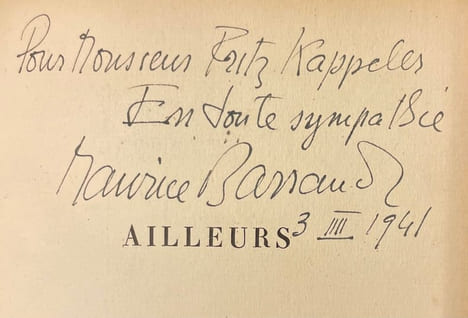 Pour Monsieur Fritz Kappeler
En toute sympathie
Maurice Barraud
AILLEURS
3 IIII 1941